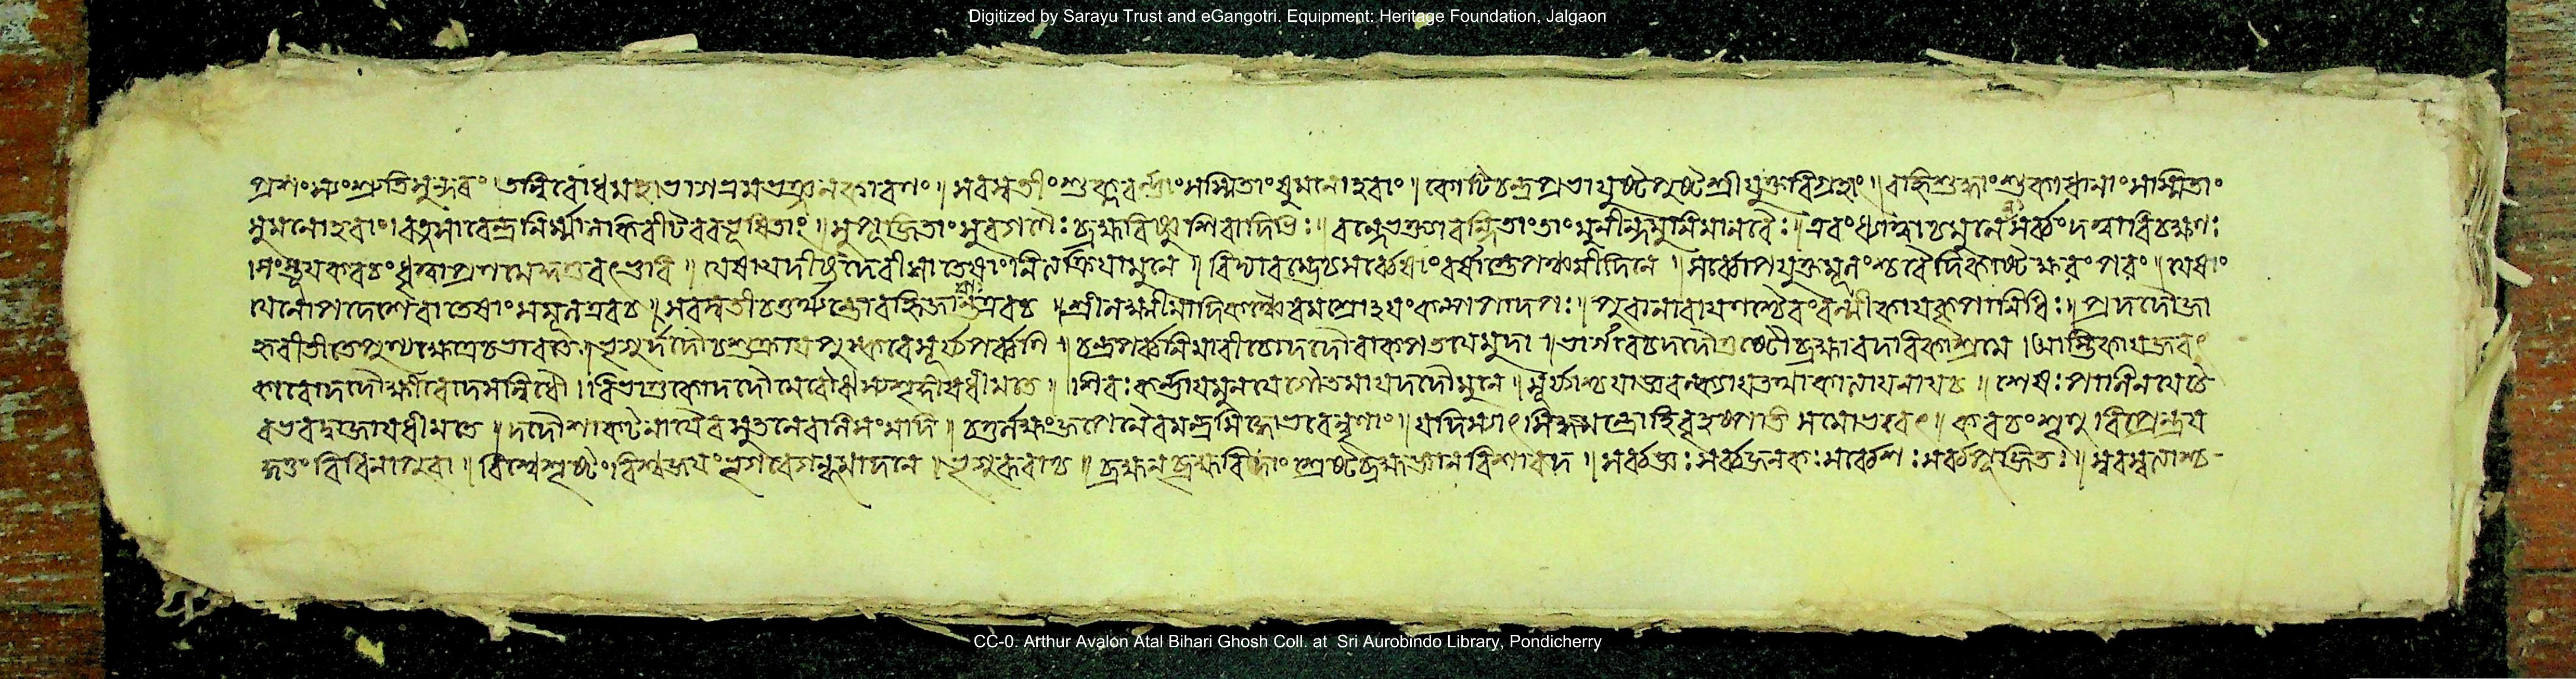 Digitized by Sarayu Trust and eGangotri. Equipment: Heritage Foundation, Jalgaon
শ্রুতিসুন্দরং তন্নিবোধ মহাভাগ ॥ সরস্বতীং শুক্লবর্ণাং সস্মিতাং সুমনোহরাং ॥ কোটিচন্দ্রপ্রভামুষ্টপুষ্টশ্রীযুক্তবিগ্রহাং ॥ বহ্নিশুদ্ধাং শুকাধানাং সস্মিতাং
সুমনোহরাং । রত্নসারেন্দ্রনির্ম্মাণ ॥ সুপূজিতাং সুরগণৈঃ ব্রহ্মবিষ্ণুশিবাদিভিঃ ॥ বন্দে ভক্ত্যা বন্দিতাং তাং মুনীন্দ্রমনুমানবৈঃ ॥ এবং ধ্যাত্বা চ মূলেন সর্ব্বং দত্ত্বা বিচক্ষণঃ
সংস্তূয় কবচং ধৃত্বা প্রণমেদ্দণ্ডবৎ ভুবি ॥ যেষাং দেবী তেষাং নিত্যক্রিয়া মুনে ॥ বিদ্যারম্ভে চ সর্ব্বেষাং বর্ষান্তে পঞ্চমীদিনে ॥ সর্ব্বোপযুক্তমূলং চ বৈদিকাষ্টাক্ষরং পরং ॥ যেষাং
যেনোপদেশো বা তেষাং স মূল এব চ ॥ সরস্বতী চতুর্থ্যন্তো বহ্নিজায়ান্ত এব চ ॥ লক্ষ্মীমায়াদিকঞ্চৈব মন্ত্রোঽয়ং কল্পপাদপঃ ॥ পুরা নারায়ণশ্চৈবং বাল্মীকায় কৃপানিধিঃ ॥ প্রদদৌ জা
হ্নবীতীরে পুণ্যক্ষেত্রে চ ভারতে ॥ ভৃগুর্দদৌ চ শুক্রায় পুষ্করে সূর্য্যপর্ব্বণি ॥ চন্দ্রপর্ব্বণি মারীচো দদৌ বাক্পতয়ে মুদা ॥ ভৃগবে চ দদৌ তুষ্টো ব্রহ্মা বদরিকাশ্রমে । আস্তিকায় জরৎ
কারো দদৌ ক্ষীরোদসন্নিধৌ ॥ বিভাণ্ডকো দদৌ মেরৌ ঋষ্যশৃঙ্গায় ধীমতে ॥ শিবঃ কণাদমুনয়ে গৌতমায় দদৌ মুনে ॥ সূর্য্যশ্চ যাজ্ঞবল্ক্যায় তথা কাত্যায়নায় চ ॥ শেষঃ পাণিনয়ে চৈ
ব ভরদ্বাজায় ধীমতে ॥ দদৌ শাকটায়নায়ৈব সুতলে বলিসংসদি ॥ চতুর্লক্ষজপেনৈব মন্ত্রসিদ্ধো ভবেন্নৃণাং ॥ যদি স্যাৎ সিদ্ধমন্ত্রো হি বৃহস্পতি সমো ভবেৎ ॥ কবচং শৃণু বিপ্রেন্দ্র য
দ্দত্তং বিধিনা পুরা ॥ বিশ্বশ্রেষ্ঠং বিশ্বজয়ং ভৃগবে গন্ধমাদনে ॥ ভৃগুরুবাচ ॥ ব্রহ্মন্ ব্রহ্মবিদাং শ্রেষ্ঠ ব্রহ্মজ্ঞানবিশারদ ॥ সর্ব্বজ্ঞঃ সর্ব্বজনকঃ সর্ব্বেশঃ সর্ব্বপূজিতঃ ॥ সরস্বত্যাশ্চ
CC-0. Arthur Avalon Atal Bihari Ghosh Coll. at Sri Aurobindo Library, Pondicherry